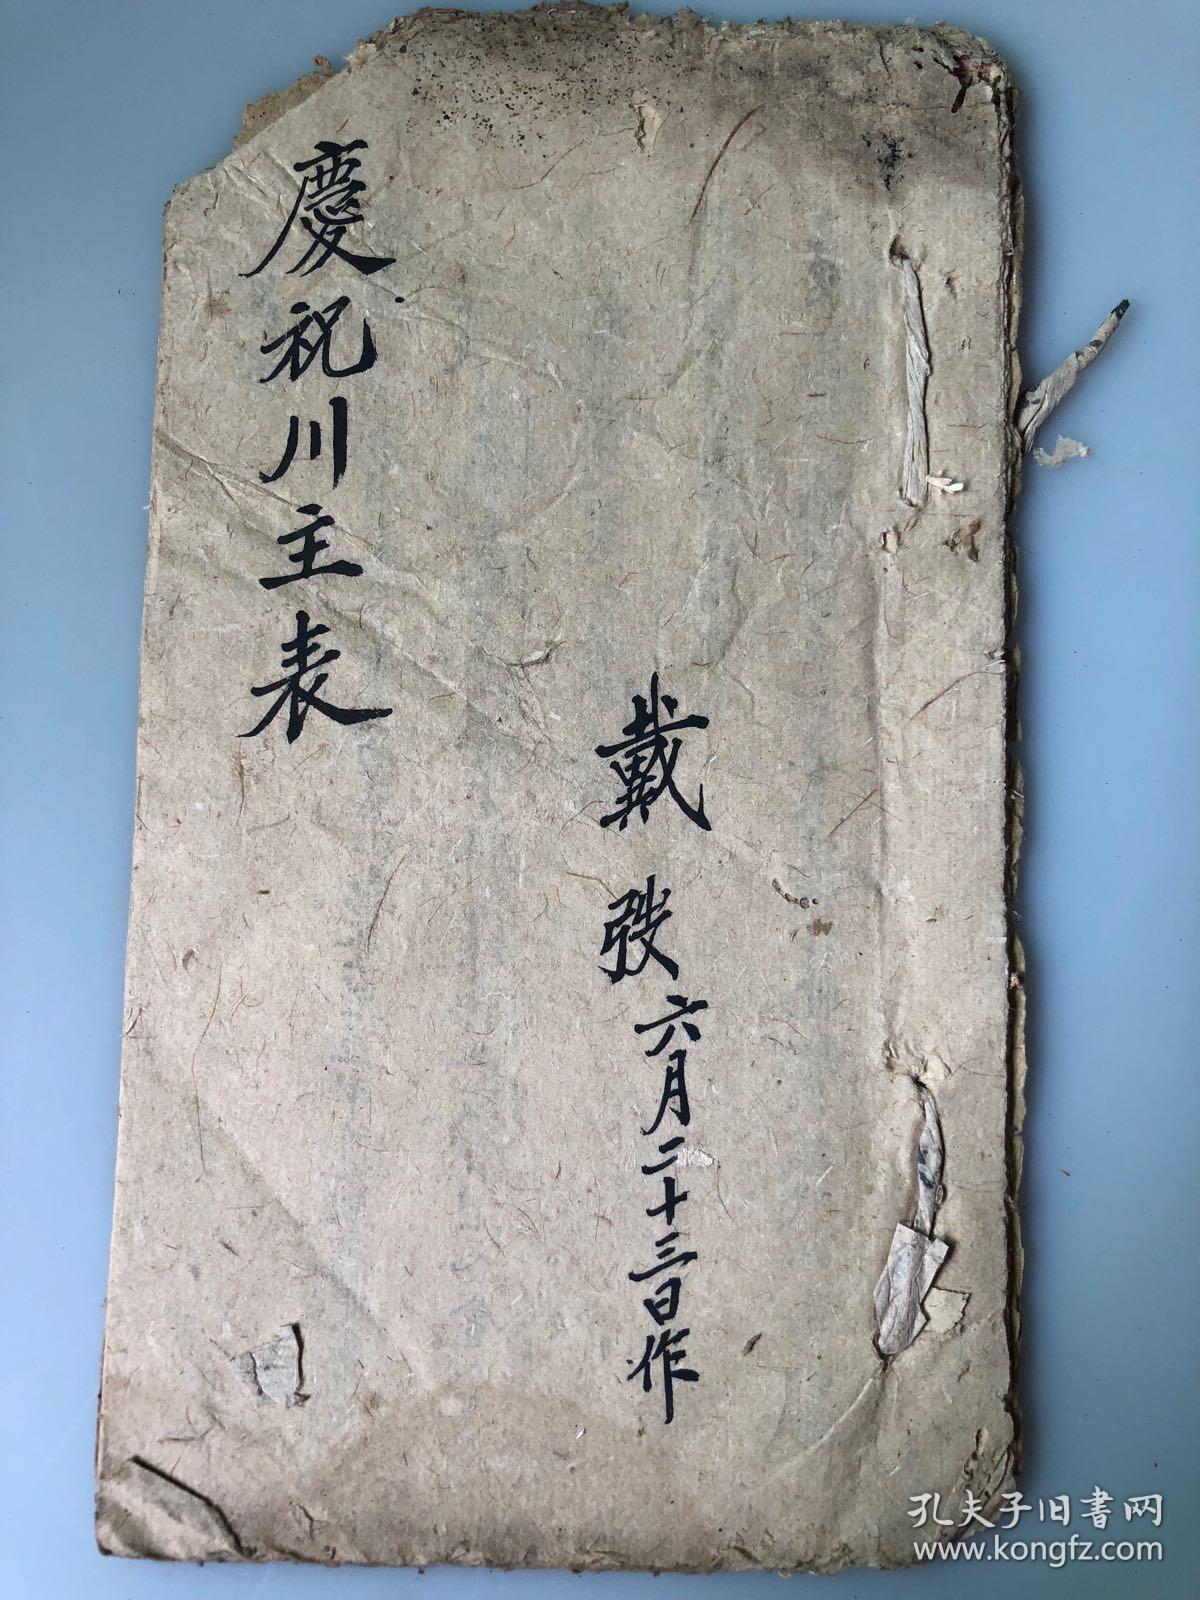 慶祝川主表
戴 六月二十三日作
孔夫子旧書网
www.kongfz.com